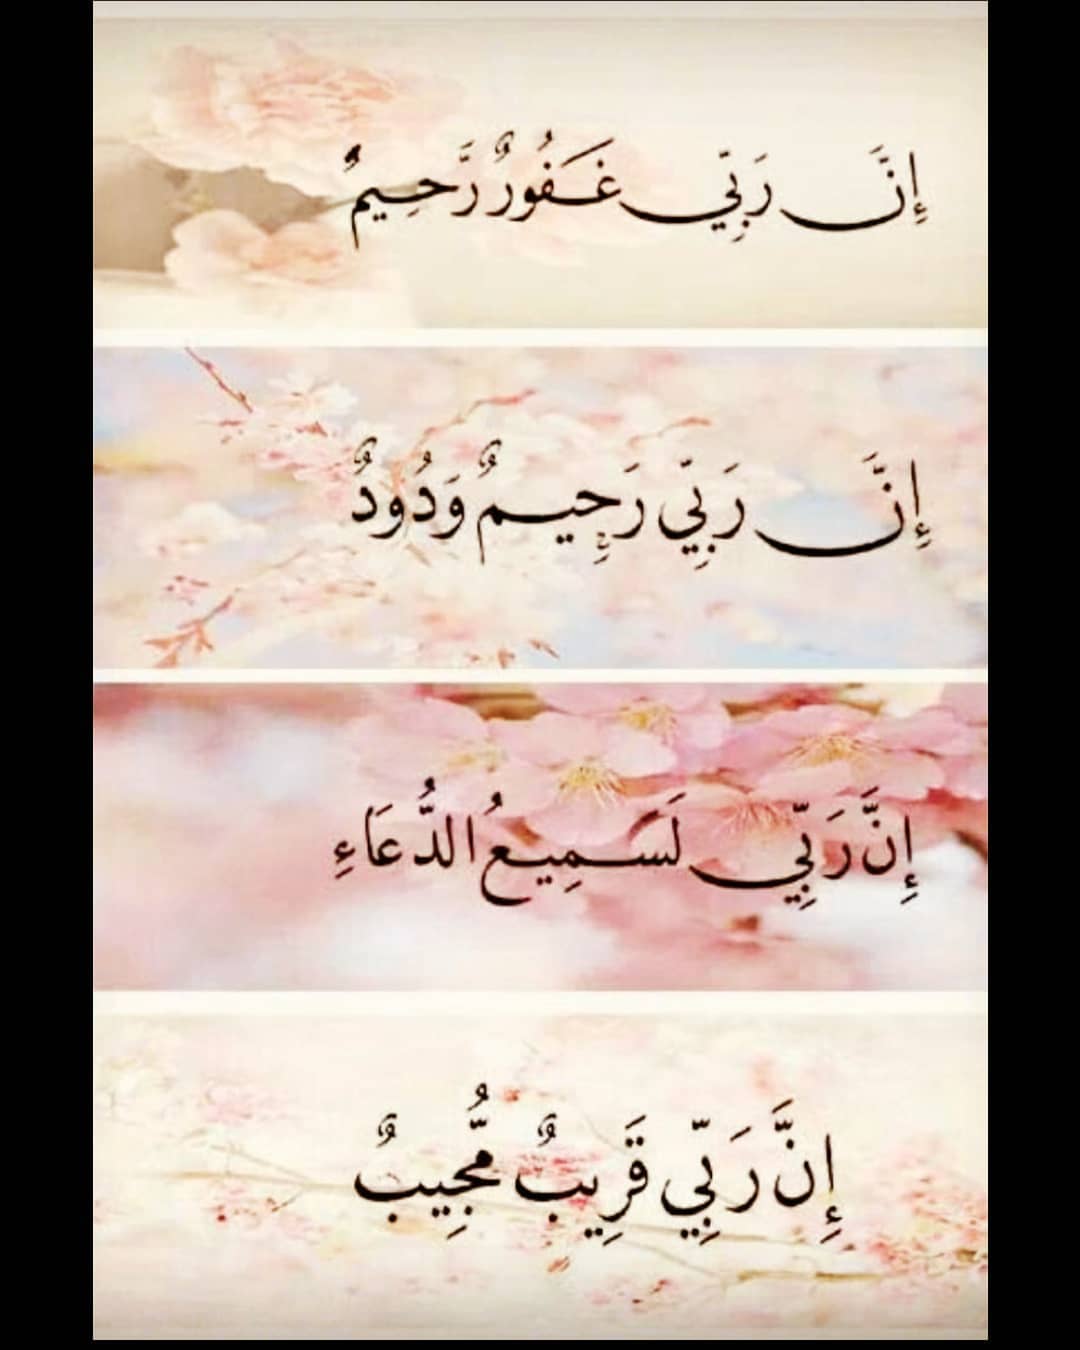 إِنَّ رَبِّي غَفُورٌ رَّحِيمٌ
إِنَّ رَبِّي رَحِيمٌ وَدُودٌ
إِنَّ رَبِّي لَسَمِيعُ الدُّعَاءِ
إِنَّ رَبِّي قَرِيبٌ مُّجِيبٌ